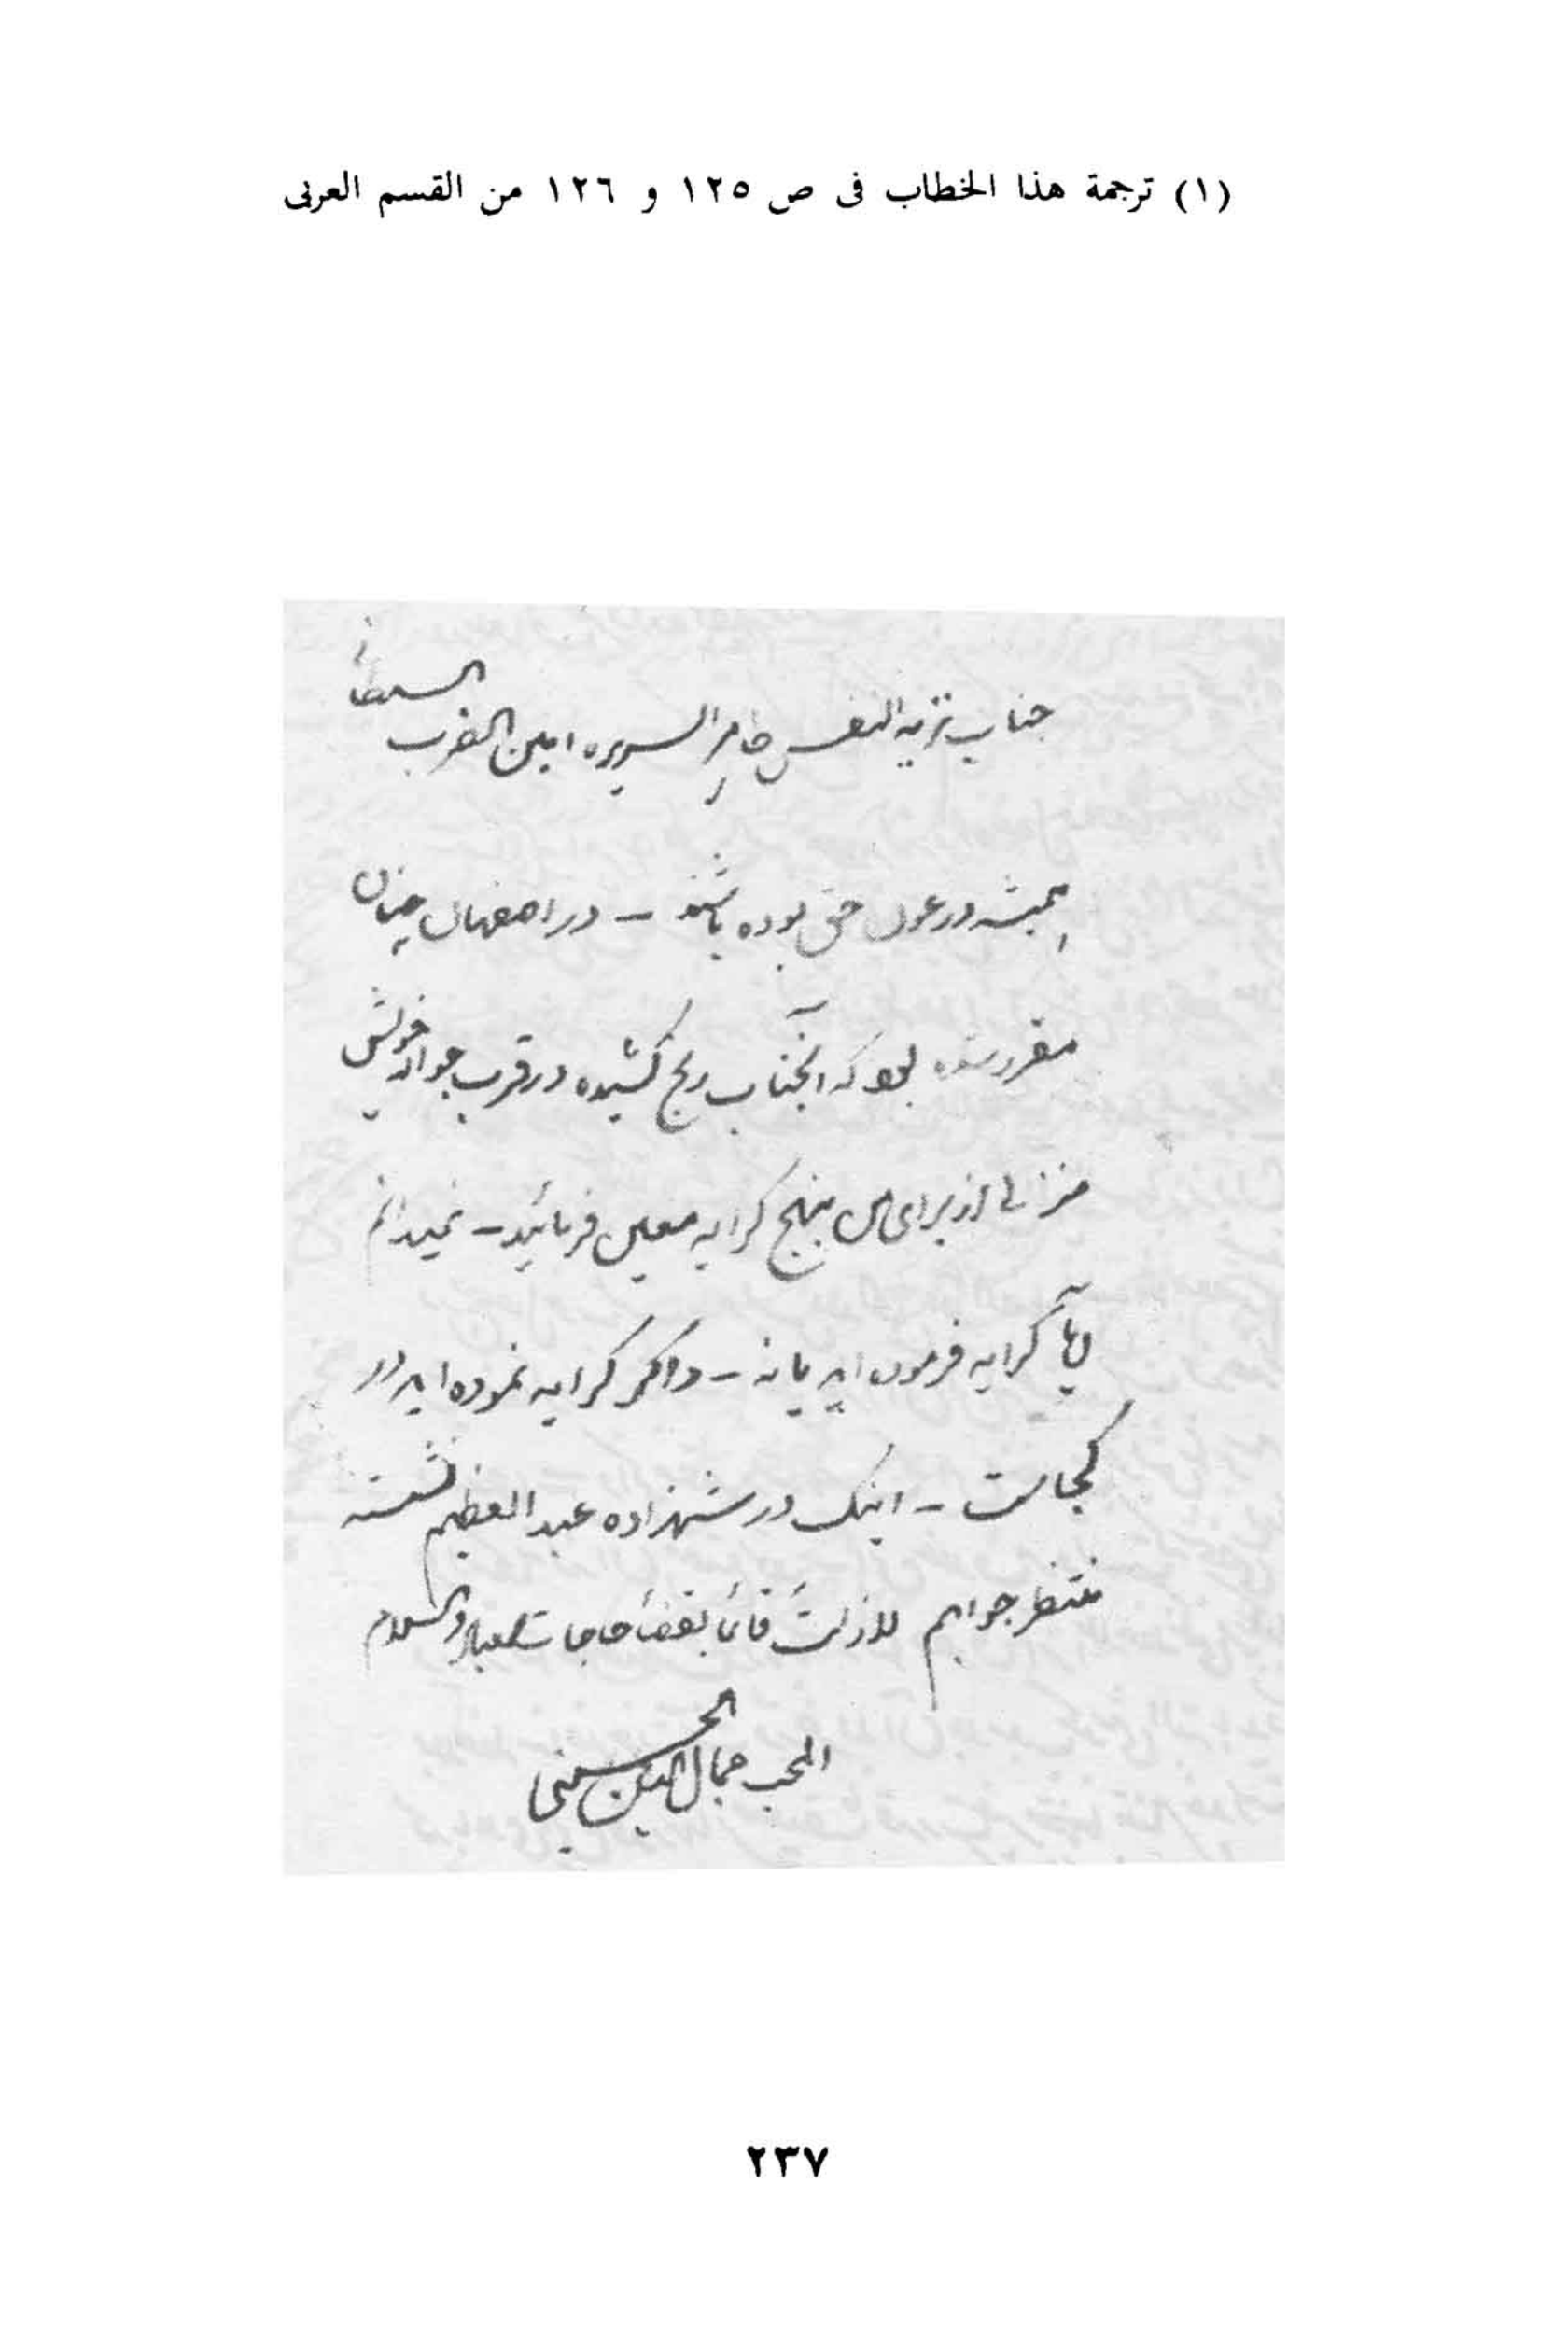 (١) ترجمة هذا الخطاب فى ص ١٢٥ و ١٢٦ من القسم العربى
جناب نزیه النفس طاهر السریره امین الضرب السلطانی
همیشه در عون حق بوده باشند – در اصفهان چنان
مقرر شده بود که آنجناب رنج کشیده در قرب جوار خویش
منزلی از برای من بنهج کرایه معین فرمائید – نمیدانم
کرایه فرموده اید یا نه – و اگر کرایه نموده اید در
کجاست – اینک در شهزاده عبد العظیم نشسته
منتظر جوابم لازلت قائما بقضاء حاجات العباد والسلام
المحب جمال الدین الحسینی
٢٣٧